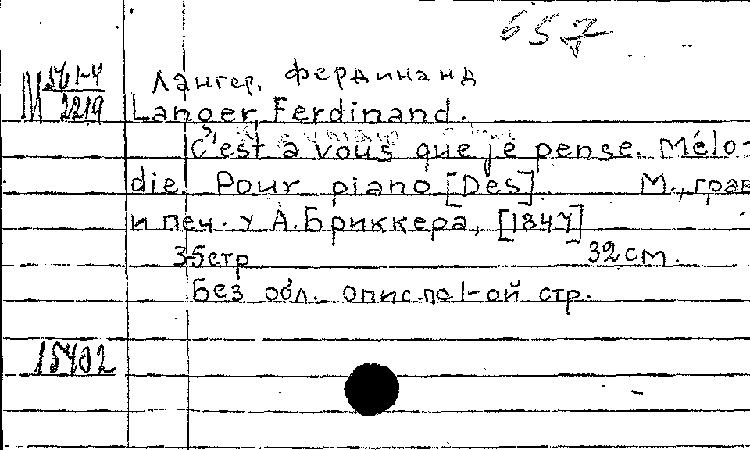 657
М 561-4
2219
Лангер, Фердинанд
Langer, Ferdinand.
C'est à vous que je pense. Mélo-
die. Pour piano [Des]. М., грав
и печ. у А. Бриккера, [184
3-5 стр 32 см.
Без обл. Опис. по 1-ой стр.
15402